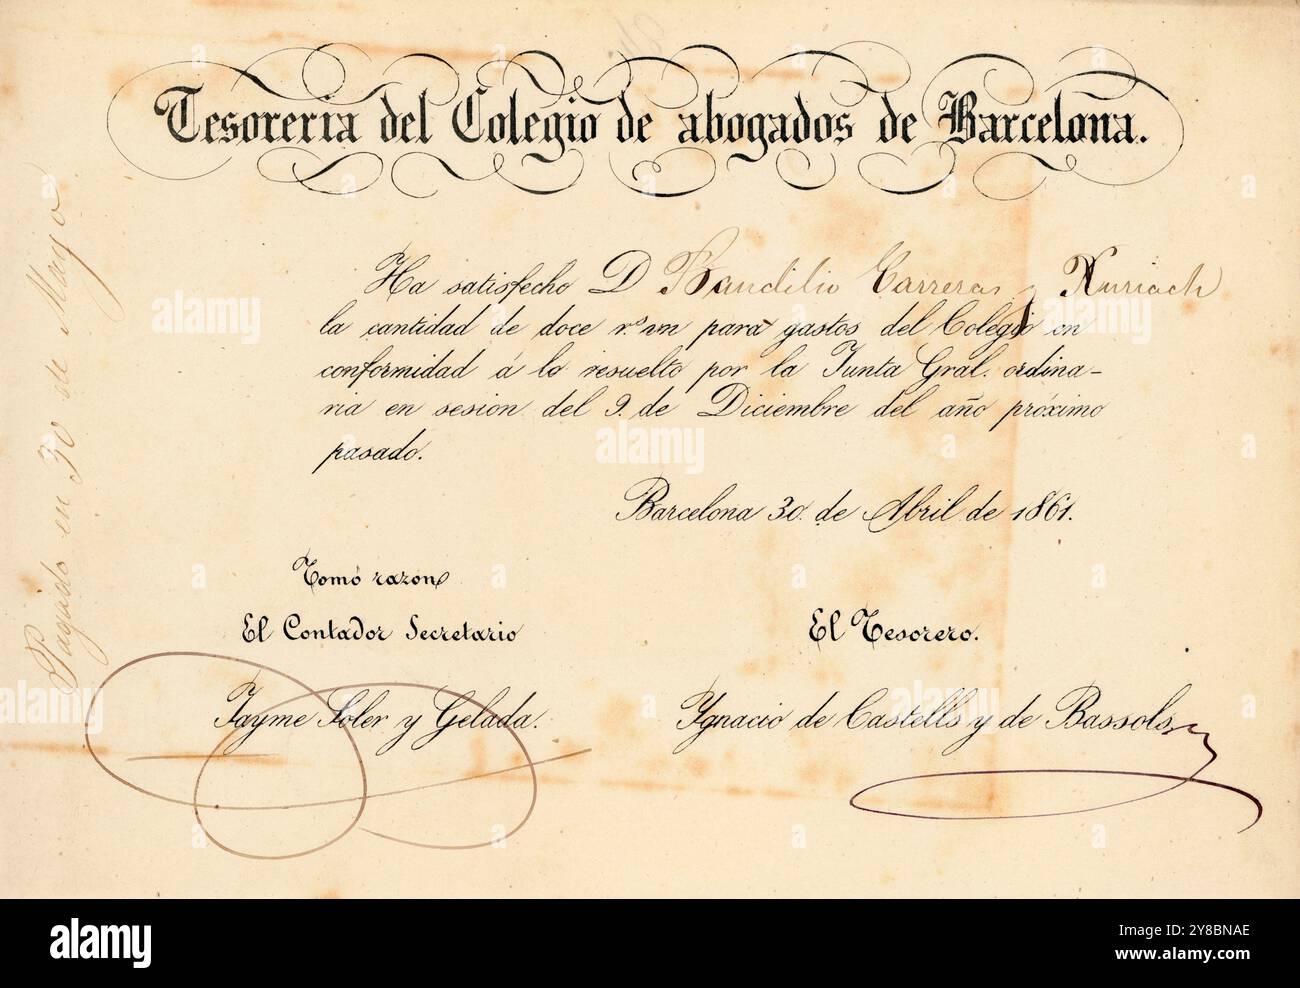 Tesoreria del Colegio de abogados de Barcelona.
Ha satisfecho D Baudilio Carreras y Xuriach
la cantidad de doce rs. vn para gastos del Colegio en
conformidad á lo resuelto por la Junta Gral. ordina-
ria en sesion del 9. de Diciembre del año próximo
pasado.
Barcelona 30. de Abril de 1861.
Tomó razon
El Contador Secretario
El Tesorero.
Jayme Soler y Gelada.
Ygnacio de Castells y de Bassols
Pagado en 30 de Mayo
alamy
Image ID: Y8BNAE
www.alamy.com